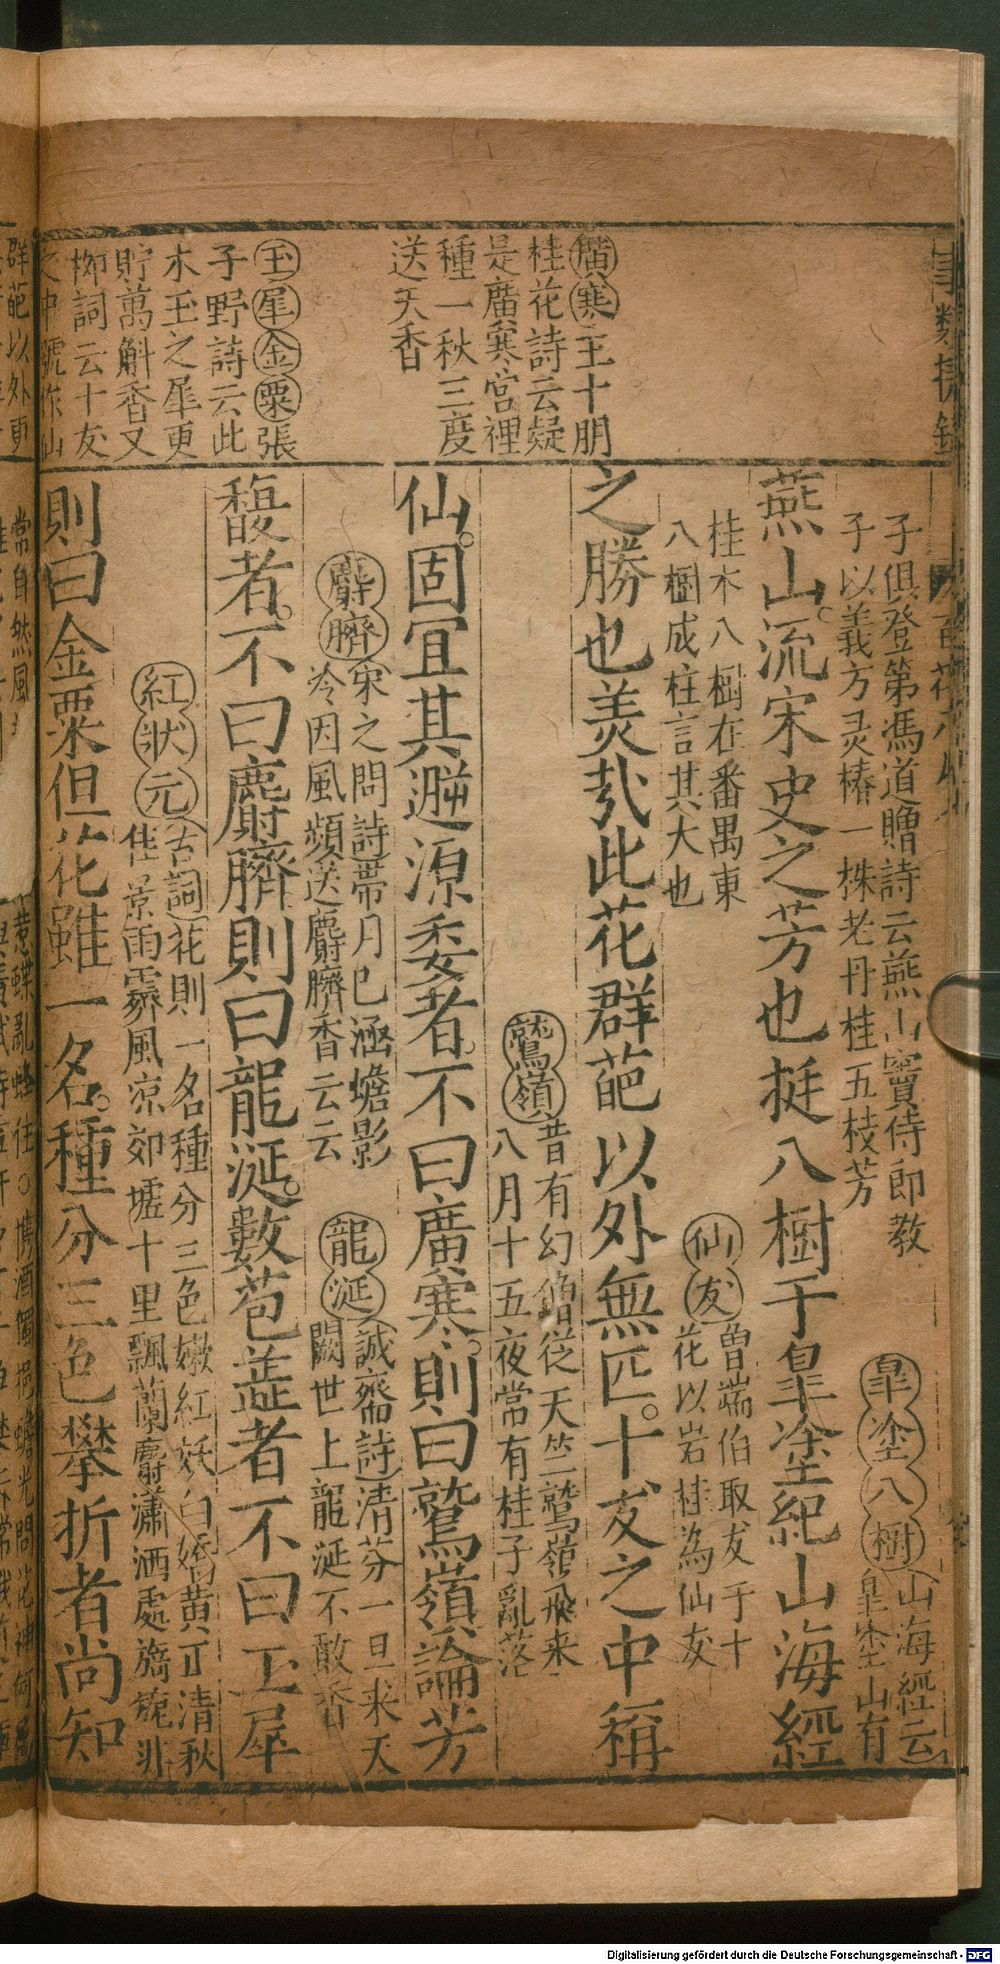 廣寒王十朋
桂花詩云疑
是廣寒宮裡
種一秋三度
送天香
玉犀金粟張
子野詩云此
木玉之犀更
貯萬斛香又
栁詞云十友
之中號作仙
子俱登第馮道贈詩云燕山竇侍郎教
子以義方灵椿一株老丹桂五枝芳
皐塗八樹山海經云
皐塗山有
燕山。流宋史之芳也挺八樹于皐塗紀山海經
桂木八樹在番禺東
八樹成柱言其大也
仙友曾端伯取友于十
花以岩桂為仙友
之勝也羙㢤此花群葩以外無匹。十友之中稱
鷲嶺昔有幻僧從天竺鷲嶺飛来
八月十五夜常有桂子亂落
仙。固宜其遡源委者。不曰廣寒。則曰鷲嶺論芳
麝臍宋之問詩帯月已涵蟾影
冷因風頻送麝臍香云云
龍涎誠齋詩清芬一旦来天
闕世上龍涎不敢香
馥者。不曰麝臍則曰龍涎。數苞蘂者不曰玉犀
紅狀元古詞花則一名種分三色嫩紅妖白嬌黄正清秋
佳景雨霽風凉郊墟十里飄蘭麝瀟洒處旖旎非
則曰金粟但花雖一名。種分三色攀折者尚知
Digitalisierung gefördert durch die Deutsche Forschungsgemeinschaft - DFG